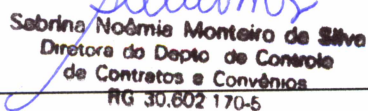 Sabrina Noêmia Monteiro da Silva
Diretora do Depto de Controle
de Contratos e Convênios
RG 30.602 170-5